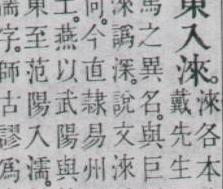 東入淶
淶各本
戴先生
馬之異名。與巨
淶譌深。說文淶
何。今直隸易州
土燕以武陽與
東至范陽入濡。
濡字。師古謬爲